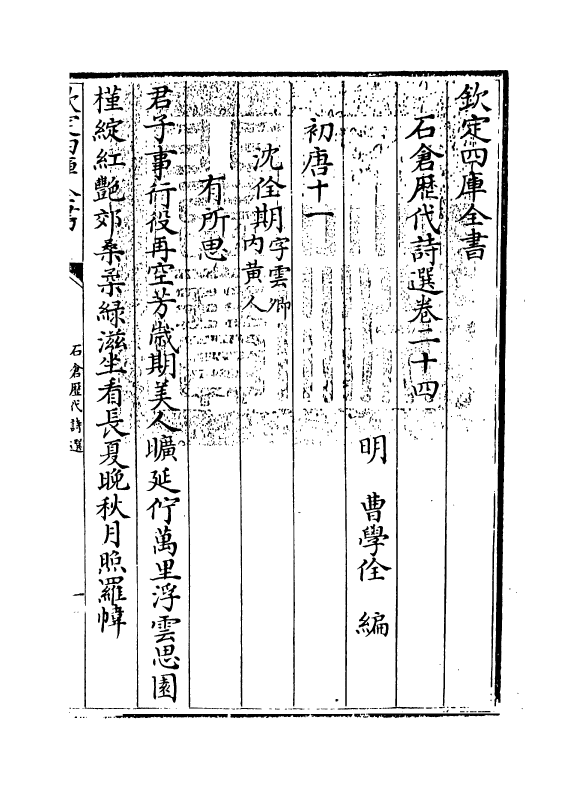 欽定四庫全書
石倉歴代詩選卷二十四
明 曹學佺 編
初唐十一
沈佺期字雲卿内黄人
有所思
君子事行役再空芳歳期美人曠延佇萬里浮雲思園
槿綻紅艷郊桑柔緑滋坐看長夏晚秋月照羅幃
欽定四庫全書
石倉歴代詩選
一